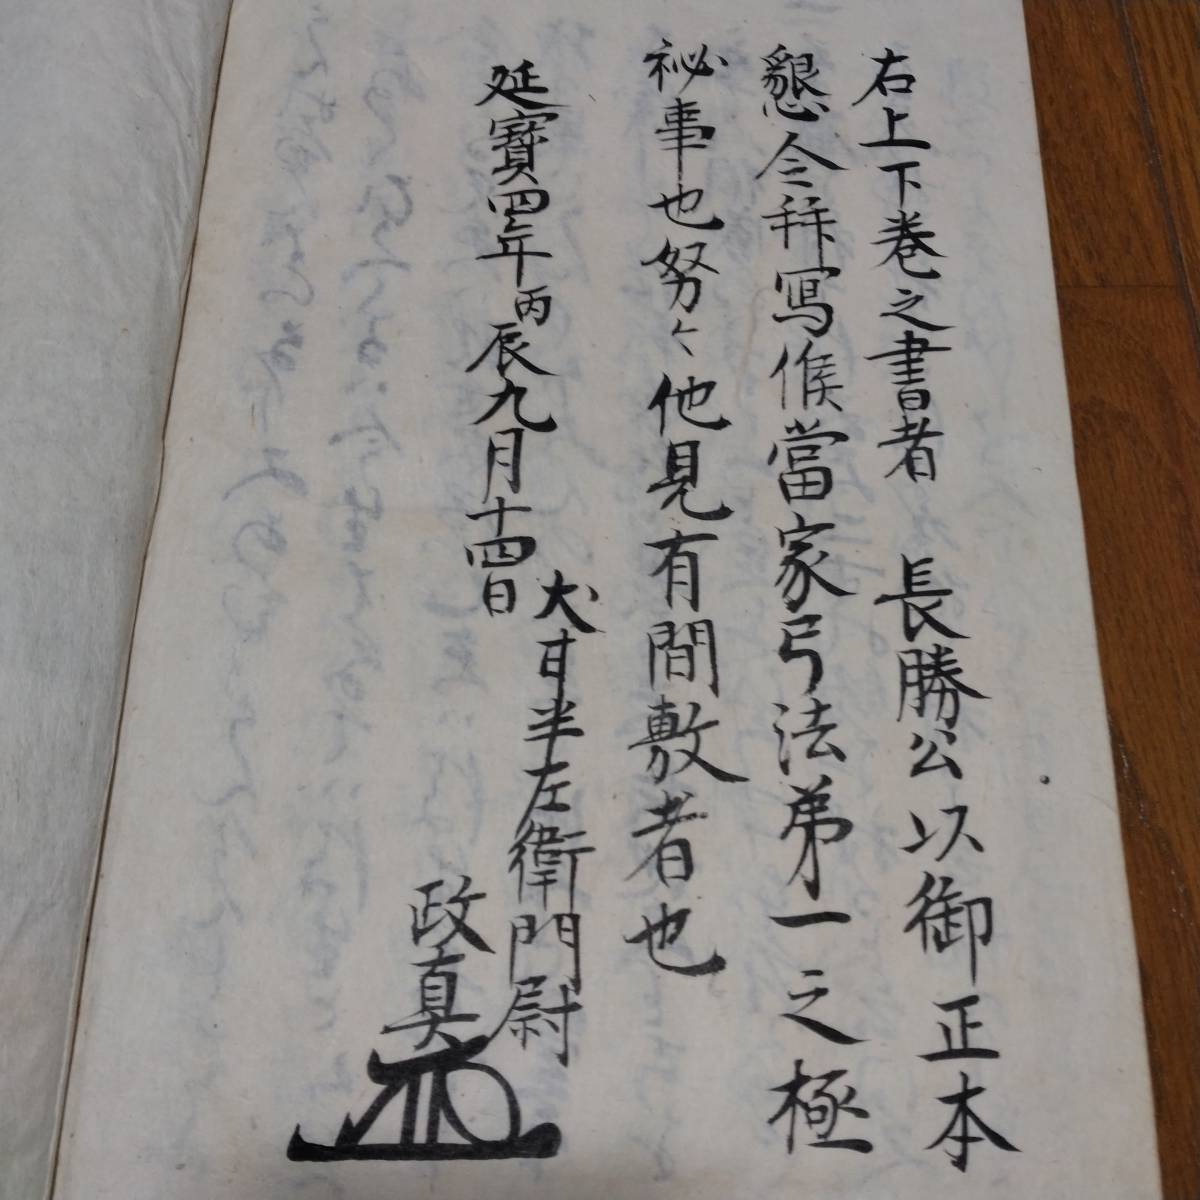 右上下巻之書者 長勝公以御正本
懇令拜寫候當家弓法第一之極
祕事也努々他見有間敷者也
延寶四年丙辰九月十四日
犬甘半左衛門尉
政真